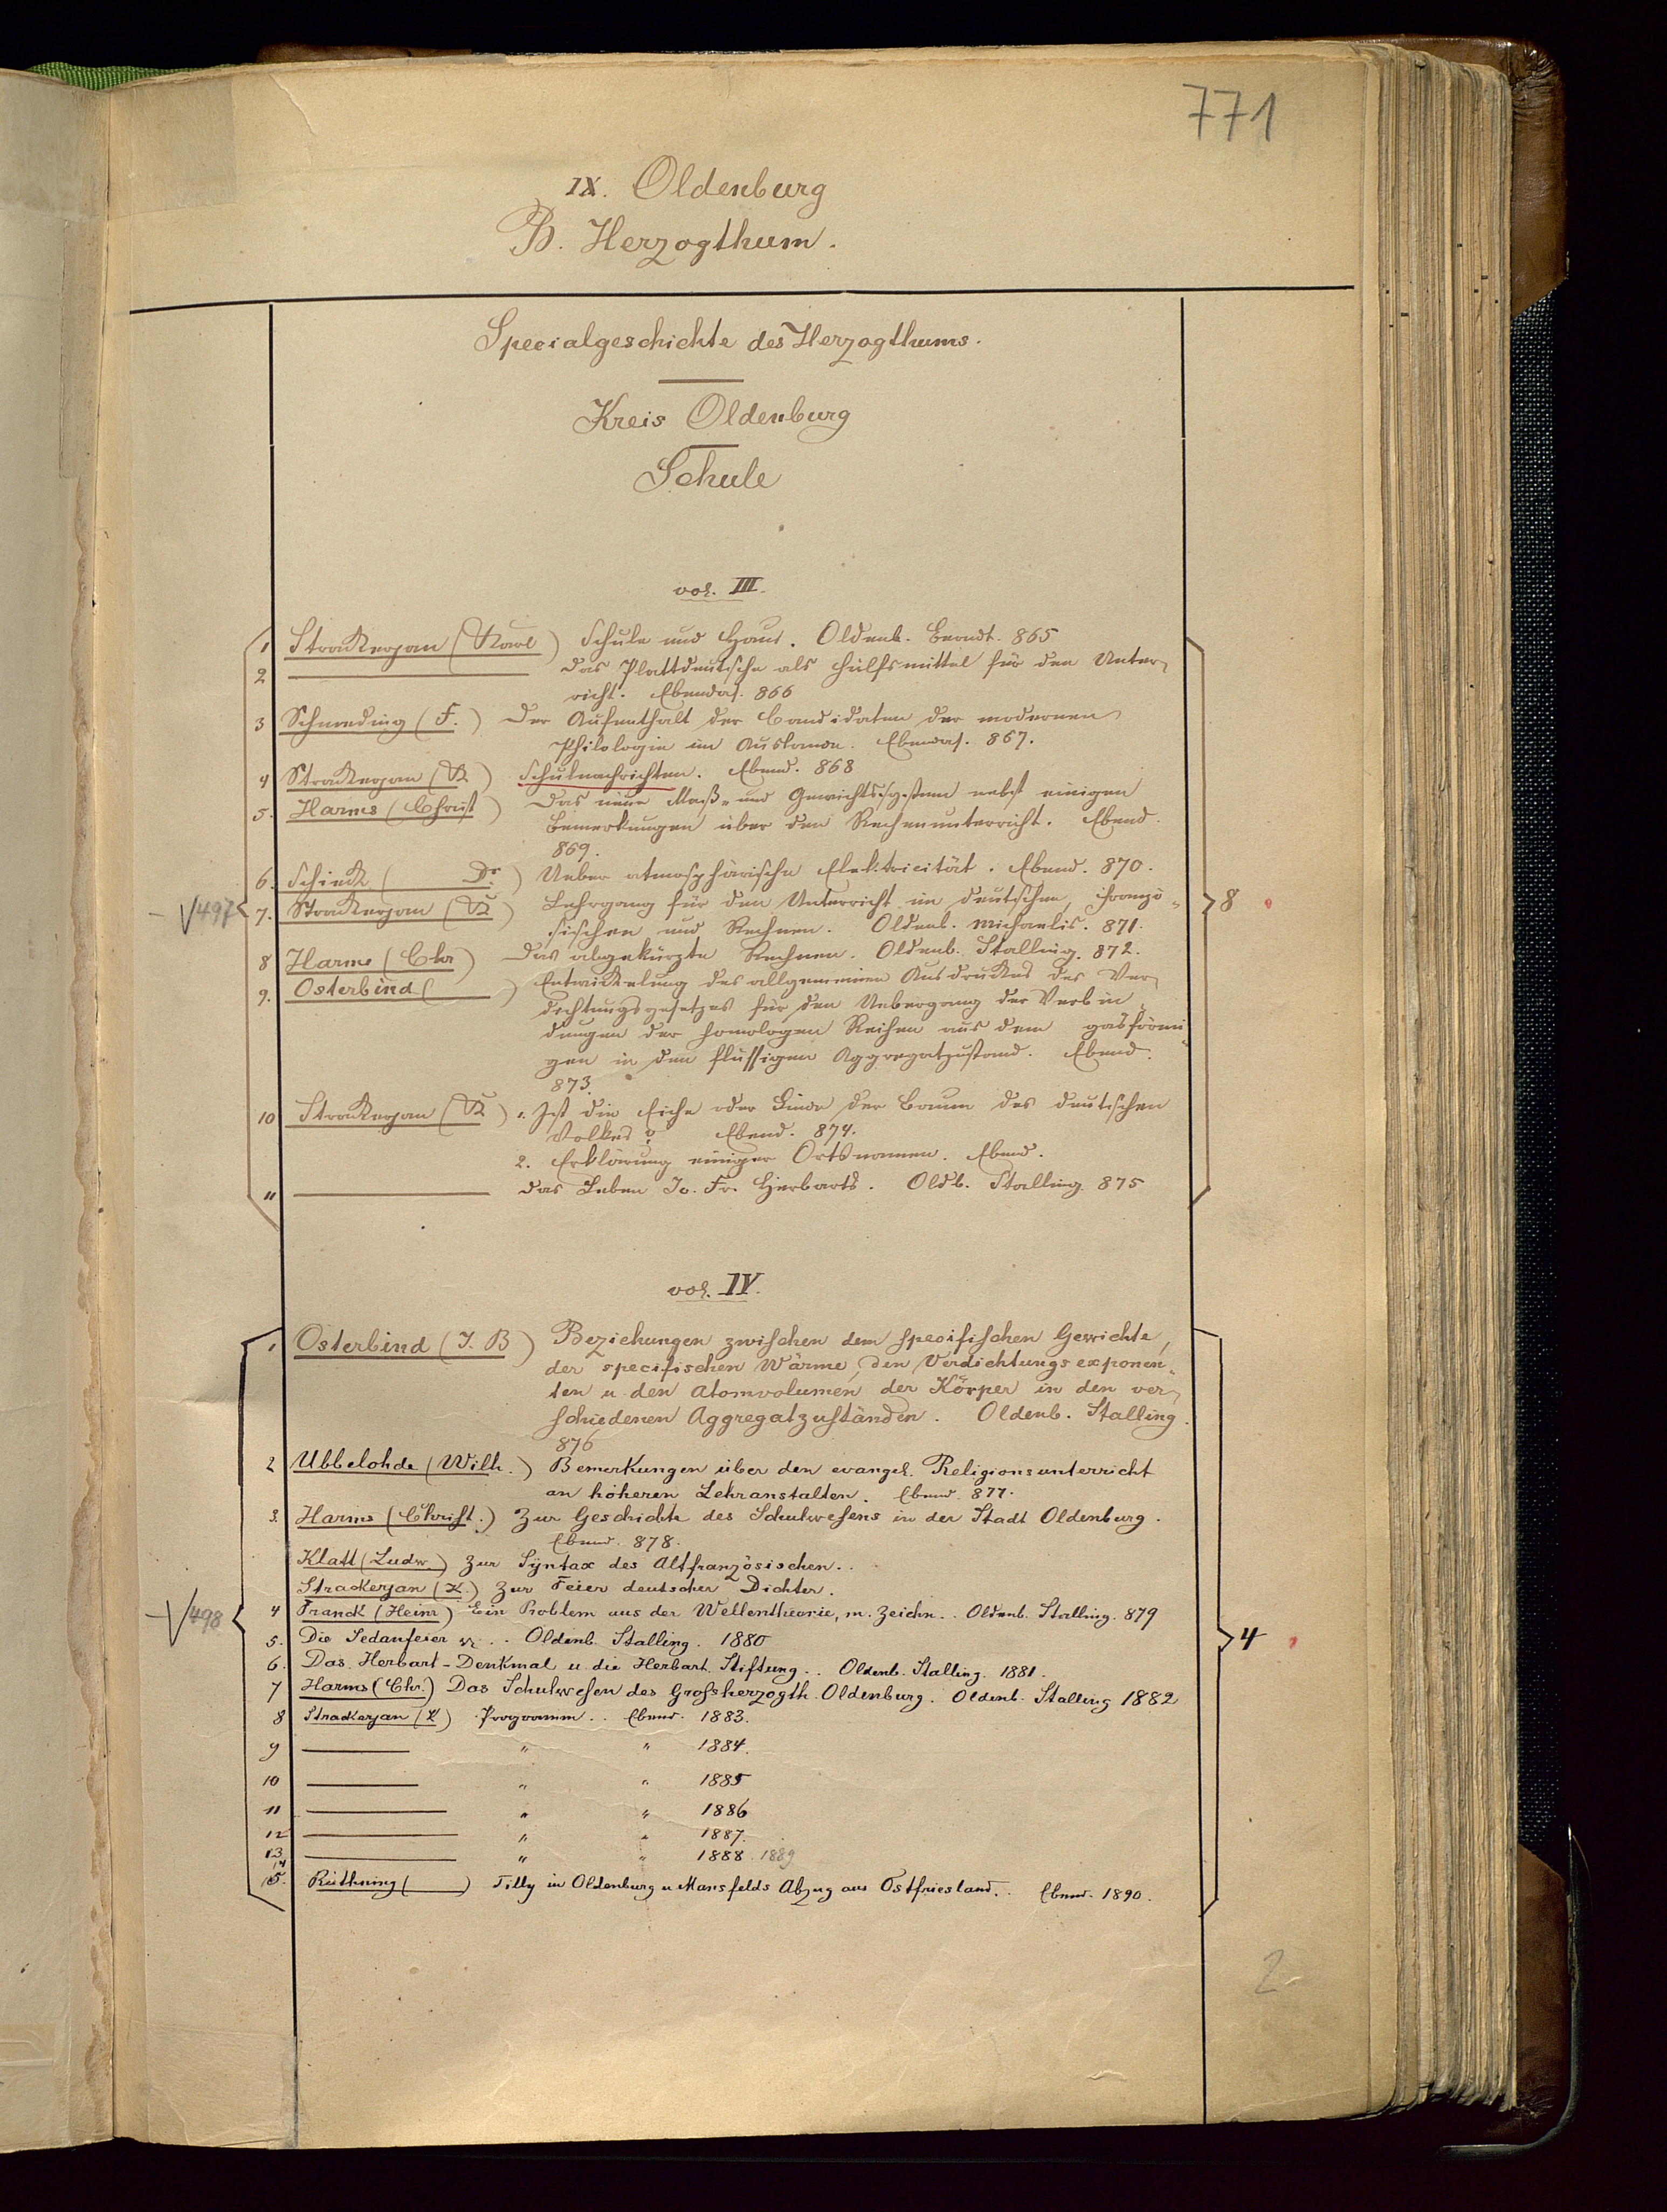 771
IX. Oldenburg
B. Herzogthum.
Specialgeschichte des Herzogthums.
Kreis Oldenburg
Schule
vol. III.
1 Strackerjan (Karl) Schule und Haus. Oldenb. Berndt. 865
2 Das Plattdeutsche als Hülfsmittel für den Unter-
richt. Ebendas. 866
3 Schmeding (F.) Der Aufenthalt der Candidaten der modernen
Philologie im Auslande. Ebendas. 867.
4 Strackerjan (K) Schulnachrichten. Ebend. 868
5. Harms (Christ) Das neue Maß- und Gewichtssystem nebst einigen
Bemerkungen über den Rechenunterricht. Ebend.
869.
6. Schieck ( Dr.) Ueber atmosphärische Elektricität. Ebend. 870.
√497 7. Strackerjan (K) Lehrgang für den Unterricht im deutschen, franzö- 8
sischen und Rechnen. Oldenb. Michaelis. 871.
8 Harms (Chr) Das abgekürzte Rechnen. Oldenb. Stalling. 872.
9. Osterbind ( ) Entwickelung des allgemeinen Ausdruckes des Ver-
dichtungsgesetzes für den Uebergang der Verbin-
dungen der homologen Reihen aus dem gasförmi-
gen in den flüssigen Aggregatzustand. Ebend.
873.
10 Strackerjan (K) 1. Ist die Eiche oder Linde der Baum des deutschen
Volkes? Ebend. 874.
2. Erklärung einiger Ortsnamen. Ebend.
11 Das Leben Jo. Fr. Herbarts. Oldb. Stalling 875
vol. IV.
1 Osterbind (J. B) Beziehungen zwischen dem specifischen Gewichte,
der specifischen Wärme, den Verdichtungsexponen-
ten u. den Atomvolumen der Körper in den ver-
schiedenen Aggregatzuständen. Oldenb. Stalling.
876
2 Ubbelohde (Wilh.) Bemerkungen über den evangel. Religionsunterricht
an höheren Lehranstalten. Ebend. 877.
3. Harms (Christ.) Zur Geschichte des Schulwesens in der Stadt Oldenburg.
Ebend. 878.
Klatt (Ludw.) Zur Syntax des Altfranzösischen..
Strackerjan (K.) Zur Feier deutscher Dichter.
√498 4 Franck (Heinr) Ein Problem aus der Wellentheorie, m. Zeichn.. Oldenb. Stalling. 879
5. Die Sedanfeier .. Oldenb. Stalling. 1880 4
6. Das Herbart-Denkmal u. die Herbart Stiftung.. Oldenb. Stalling. 1881.
7 Harms (Chr.) Das Schulwesen des Grossherzogth. Oldenburg. Oldenb. Stalling 1882
8 Strackerjan (K) Programm.. Ebend. 1883.
9 " " 1884.
10 " " 1885
11 " " 1886
12 " " 1887.
13 " " 1888. 1889
14
15. Rüthning ( ) Tilly in Oldenburg u. Mansfelds Abzug aus Ostfriesland.. Ebend. 1890.
2